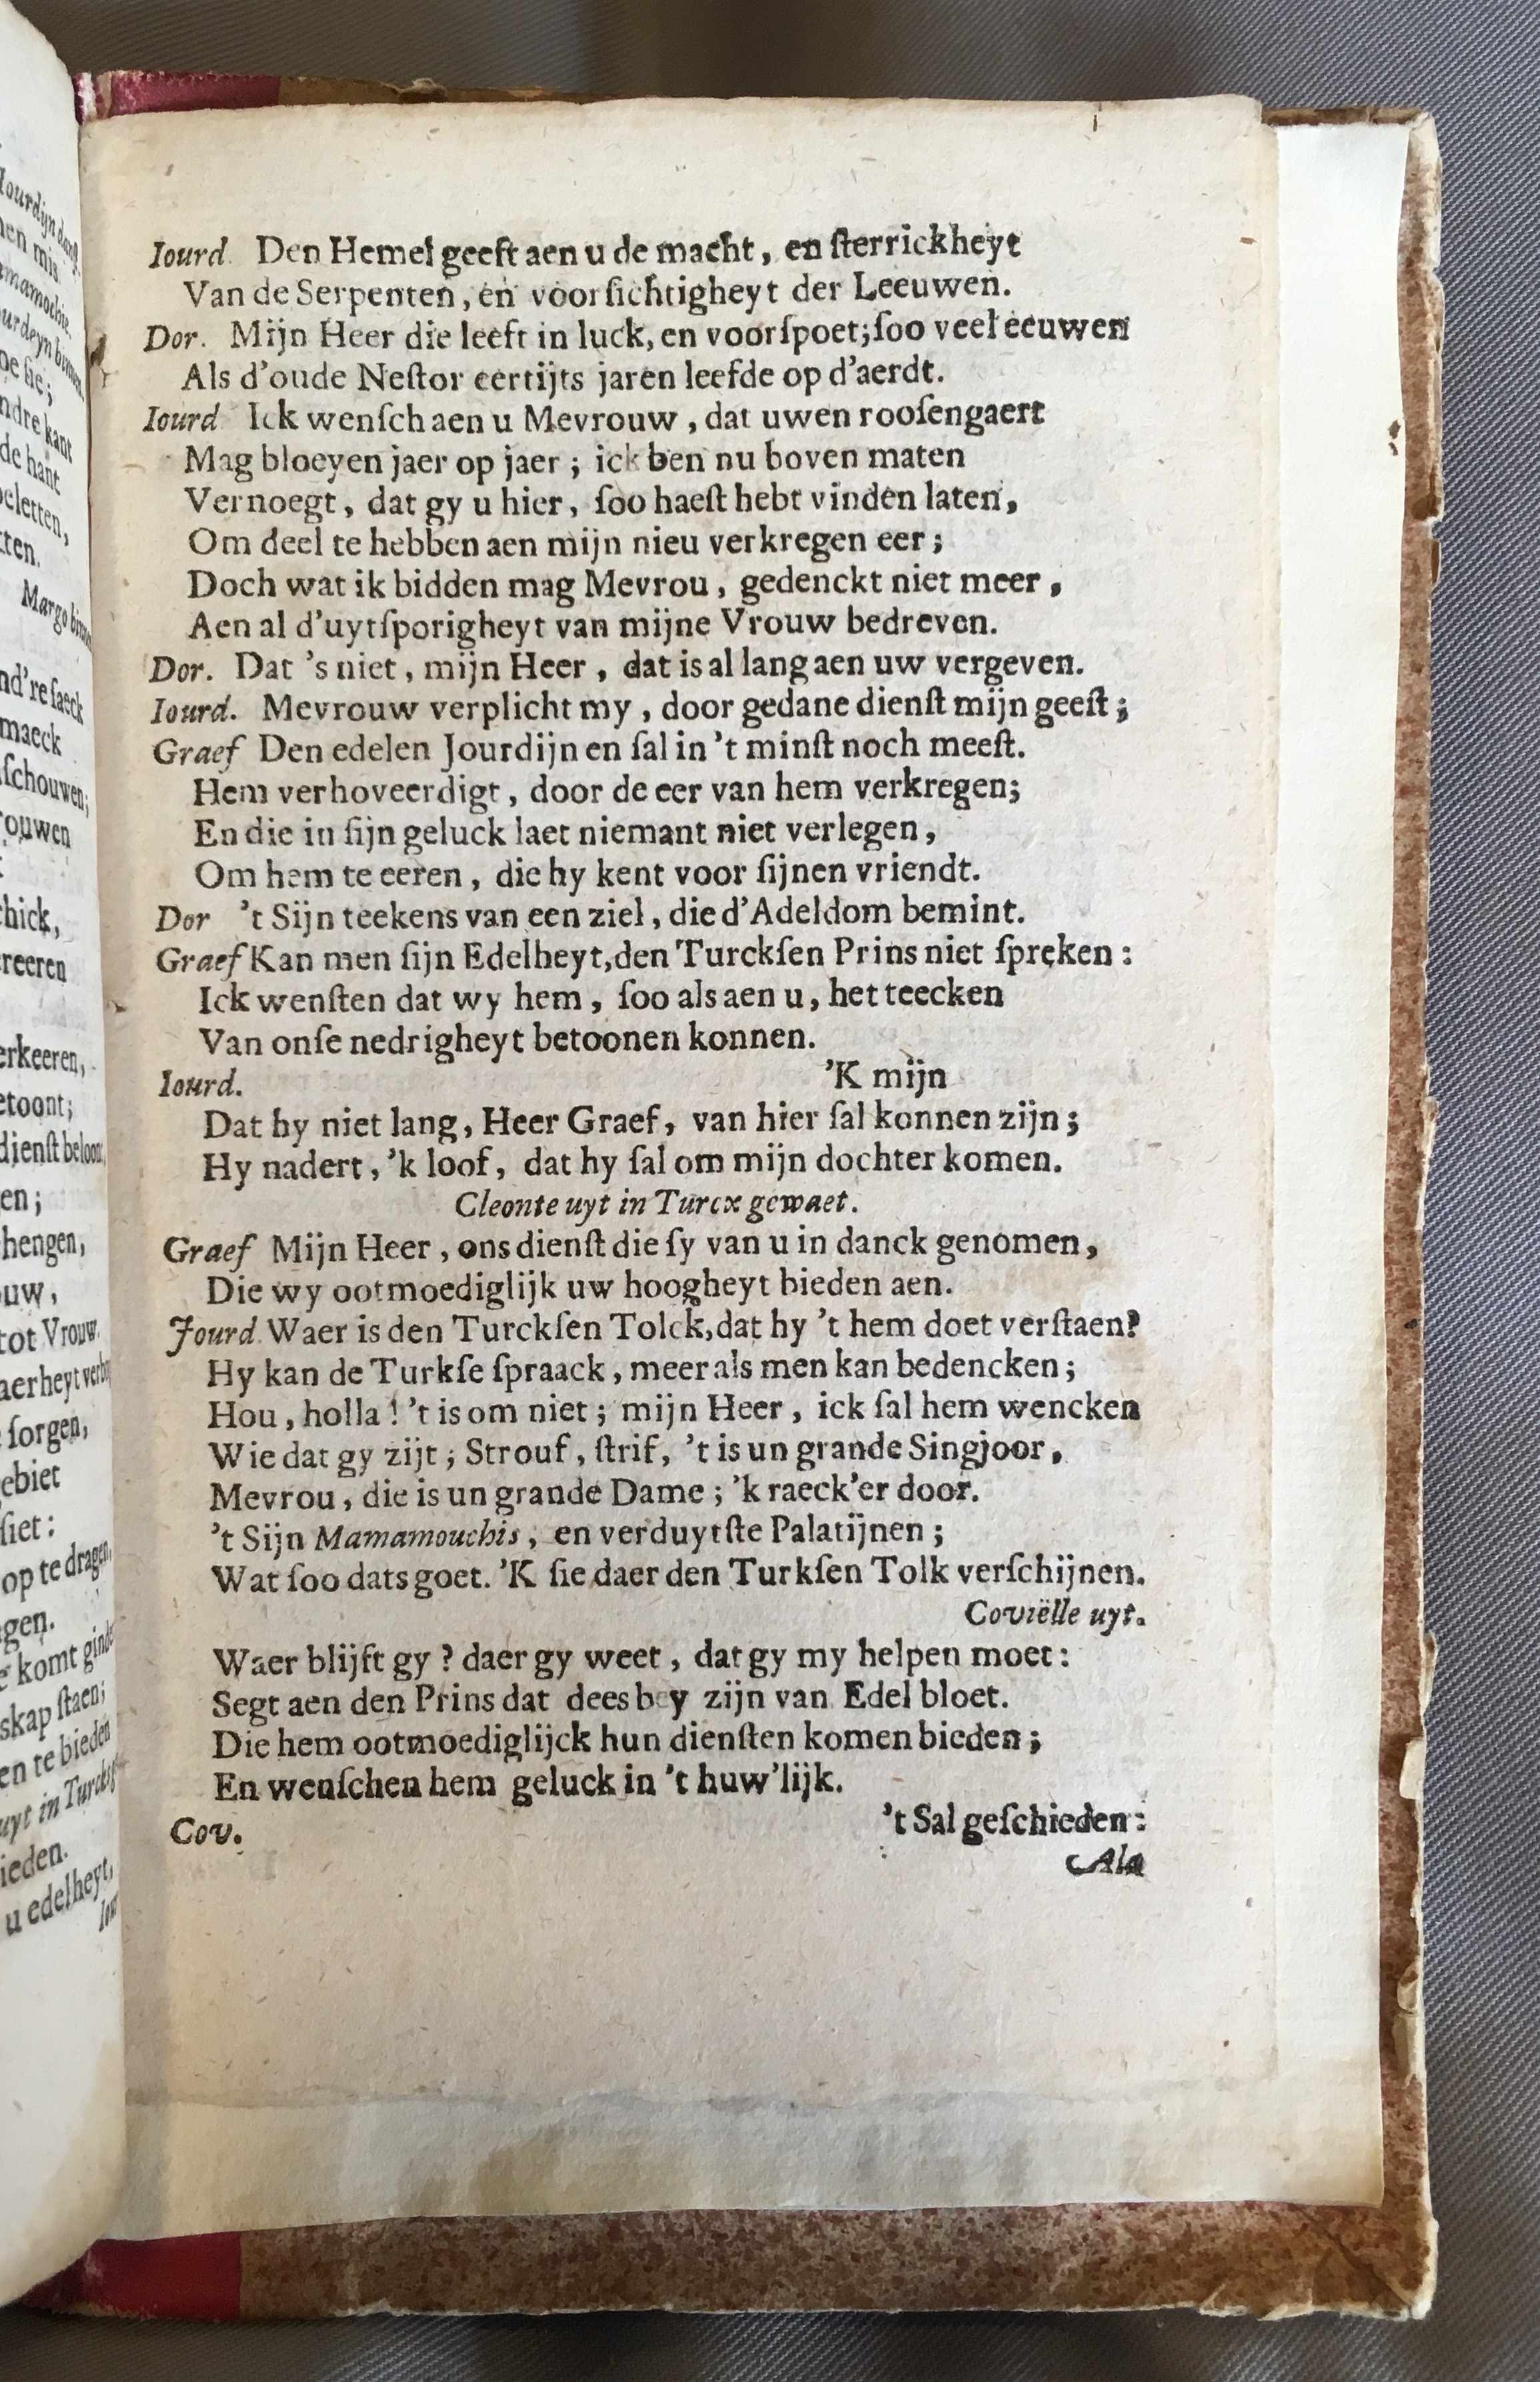 Iourd. Den Hemel geeft aen u de macht, en ſterrickheyt
Van de Serpenten, en voorſichtigheyt der Leeuwen.
Dor. Mijn Heer die leeft in luck, en voorſpoet; ſoo veel eeuwen
Als d'oude Neſtor eertijts jaren leefde op d'aerdt.
Iourd Ick wenſch aen u Mevrouw, dat uwen rooſengaert
Mag bloeyen jaer op jaer; ick ben nu boven maten
Vernoegt, dat gy u hier, ſoo haeſt hebt vinden laten,
Om deel te hebben aen mijn nieu verkregen eer;
Doch wat ik bidden mag Mevrou, gedenckt niet meer,
Aen al d'uytſporigheyt van mijne Vrouw bedreven.
Dor. Dat 's niet, mijn Heer, dat is al lang aen uw vergeven.
Iourd. Mevrouw verplicht my, door gedane dienſt mijn geeſt;
Graef Den edelen Jourdijn en ſal in 't minſt noch meeſt.
Hem verhoveerdigt, door de eer van hem verkregen;
En die in ſijn geluck laet niemant niet verlegen,
Om hem te eeren, die hy kent voor ſijnen vriendt.
Dor 't Sijn teekens van een ziel, die d'Adeldom bemint.
Graef Kan men ſijn Edelheyt, den Turckſen Prins niet ſpreken:
Ick wenſten dat wy hem, ſoo als aen u, het teecken
Van onſe nedrigheyt betoonen konnen.
Iourd. 'K mijn
Dat hy niet lang, Heer Graef, van hier ſal konnen zijn;
Hy nadert, 'k loof, dat hy ſal om mijn dochter komen.
Cleonte uyt in Turcx gewaet.
Graef Mijn Heer, ons dienſt die ſy van u in danck genomen,
Die wy ootmoediglijk uw hoogheyt bieden aen.
Jourd. Waer is den Turckſen Tolck, dat hy 't hem doet verſtaen?
Hy kan de Turkſe ſpraack, meer als men kan bedencken;
Hou, holla! 't is om niet; mijn Heer, ick ſal hem wencken
Wie dat gy zijt; Strouf, ſtrif, 't is un grande Singjoor,
Mevrou, die is un grande Dame; 'k raeck'er door.
't Sijn Mamamouchis, en verduytſte Palatijnen;
Wat ſoo dats goet. 'K ſie daer den Turkſen Tolk verſchijnen.
Coviëlle uyt.
Waer blijft gy? daer gy weet, dat gy my helpen moet:
Segt aen den Prins dat dees bey zijn van Edel bloet.
Die hem ootmoediglijck hun dienſten komen bieden;
En wenſchen hem geluck in 't huw'lijk.
Cov. 't Sal geſchieden:
Ala